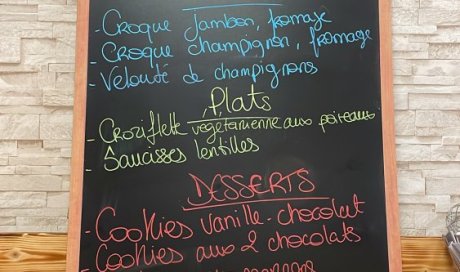 - Croque Jambon, fromage
- Croque champignon, fromage
- Velouté de champignons
Plats
- Croziflette végétarienne aux poireaux
- Saucisses lentilles
DESSERTS
- Cookies vanille - chocolat
- Cookies aux 2 chocolats